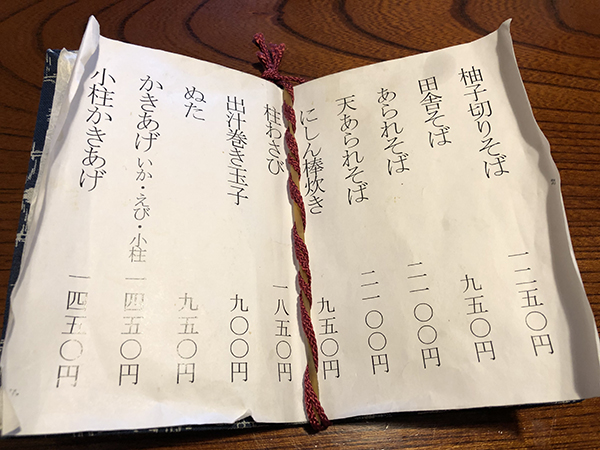 柚子切りそば 一二五〇円
田舎そば 九五〇円
あられそば 二一〇〇円
天あられそば 二一〇〇円
にしん棒炊き 九五〇円
柱わさび 一八五〇円
出汁巻き玉子 九〇〇円
ぬた 九五〇円
かきあげ いか・えび・小柱 一四五〇円
小柱かきあげ 一四五〇円